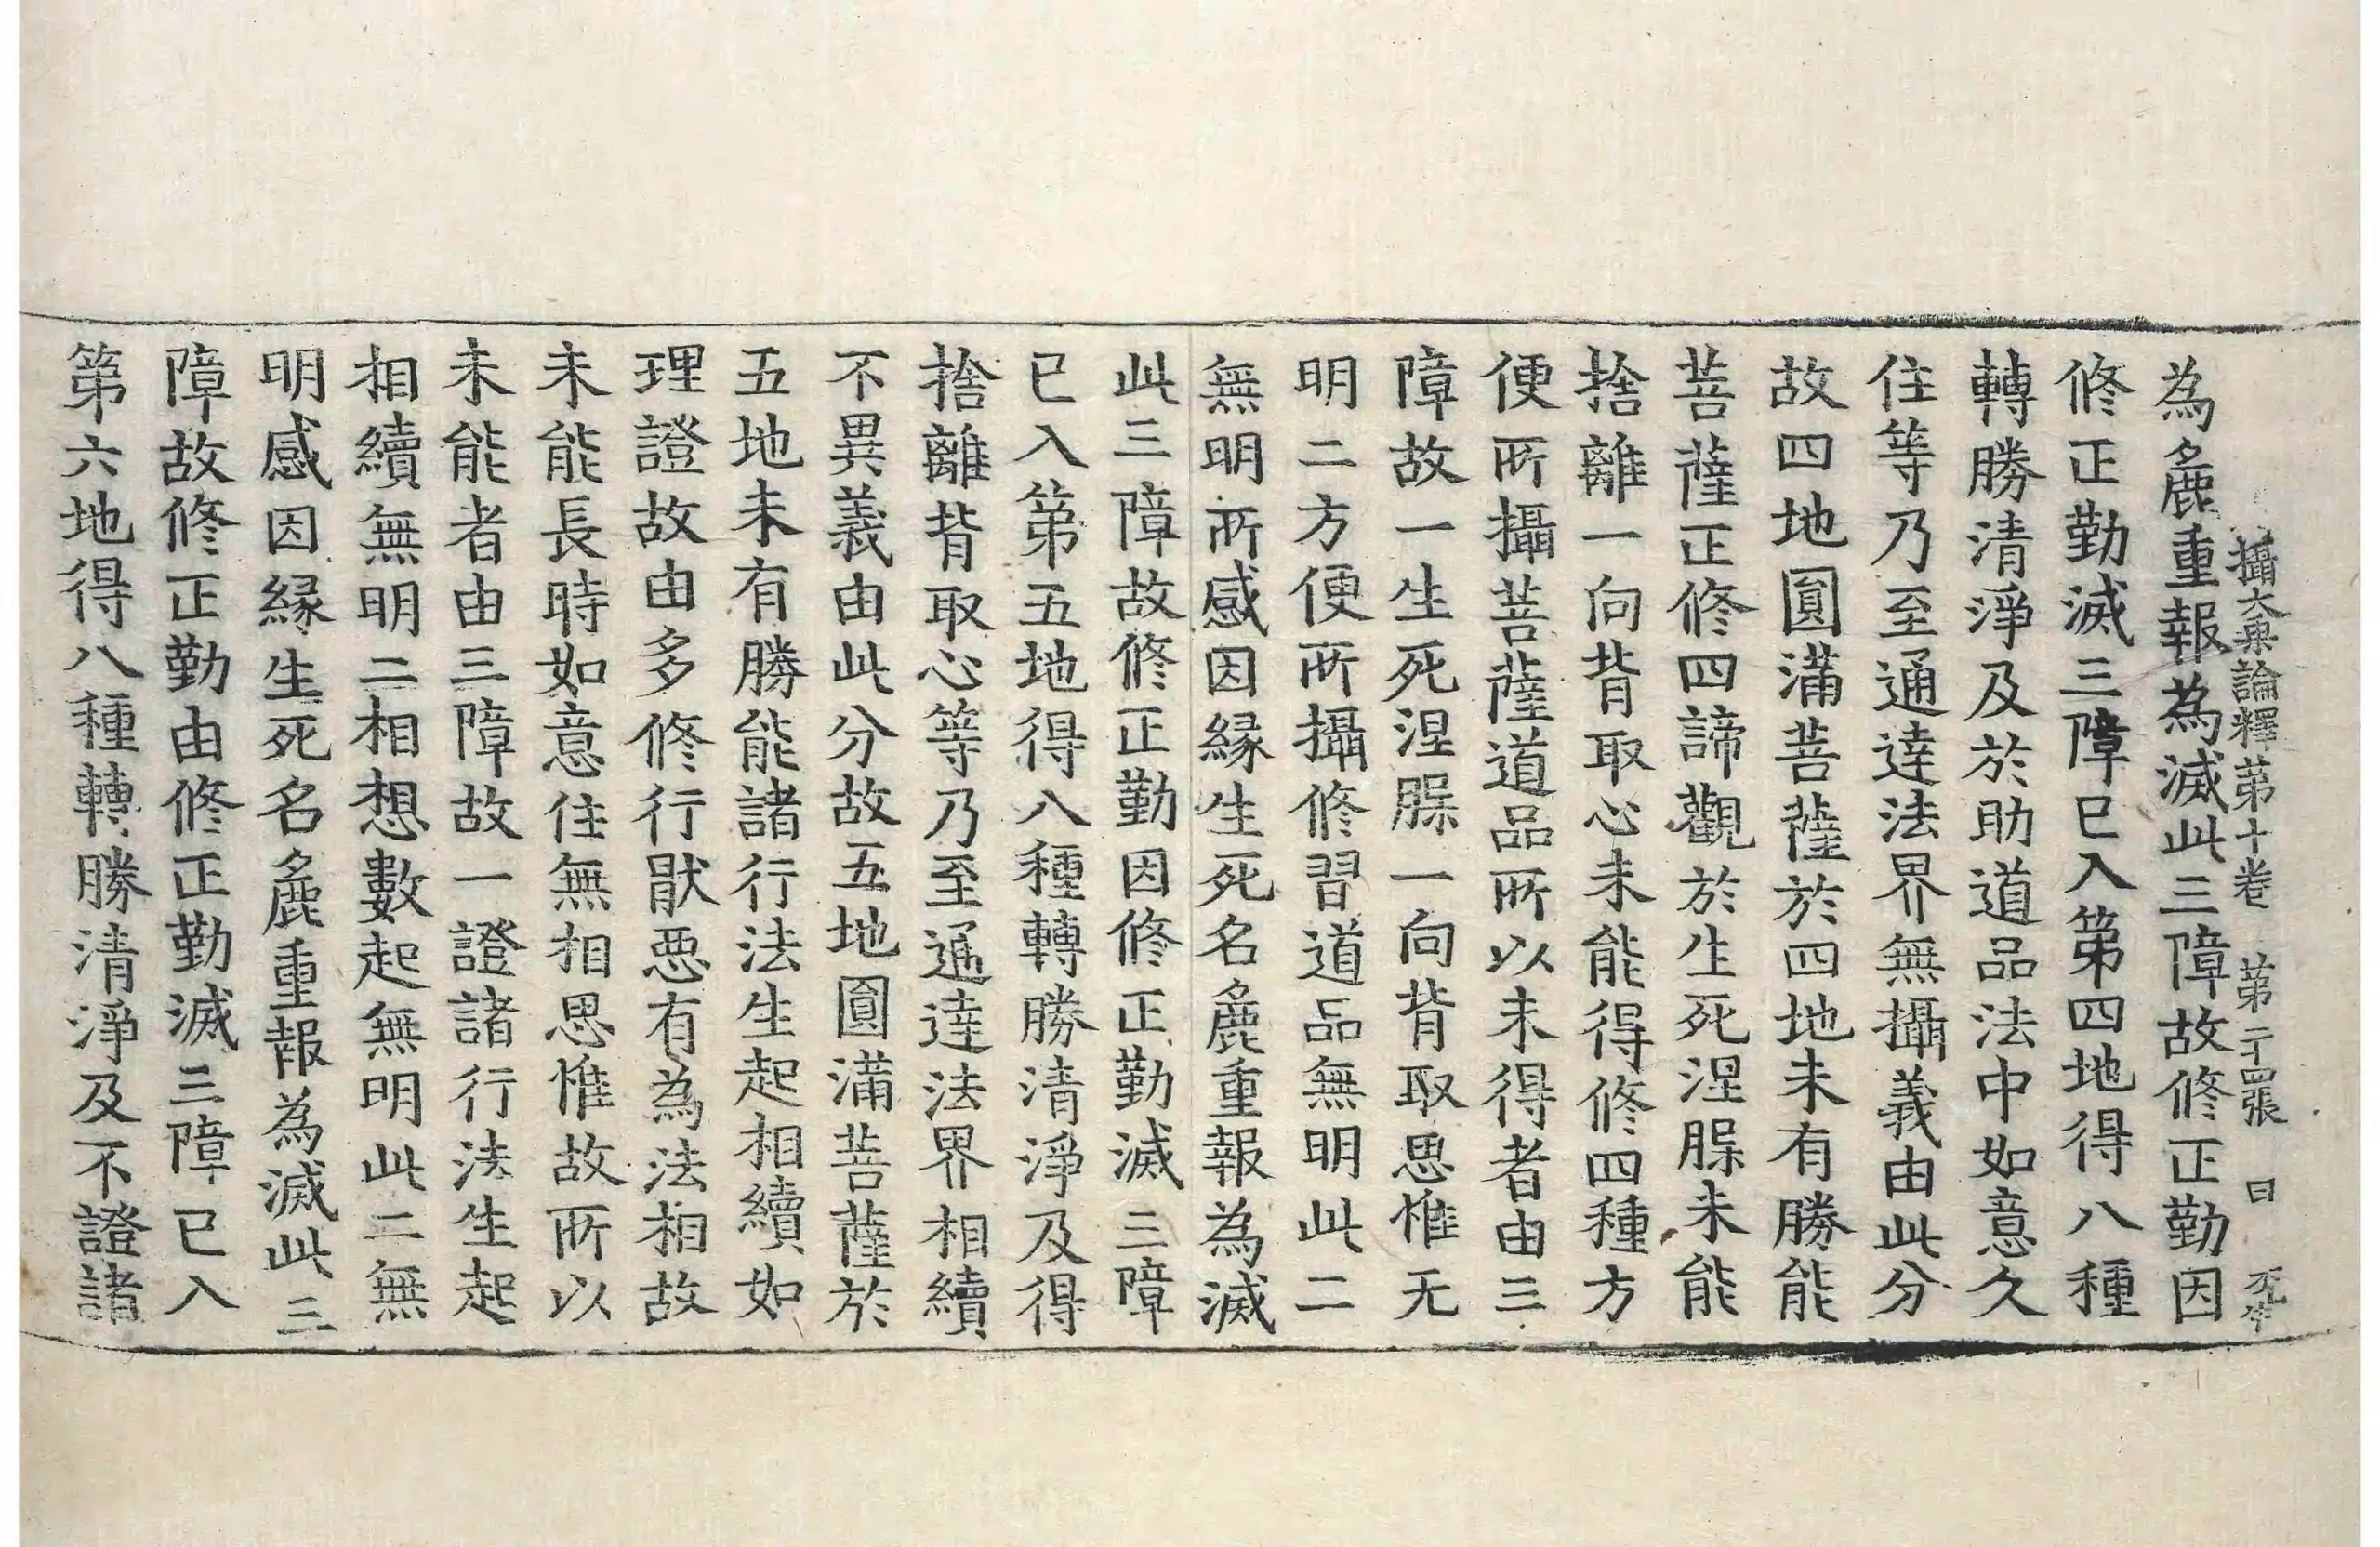 攝大乗論釋第十卷 第二十四張 曰
為麁重報為滅此三障故修正勤因
修正勤滅三障已入第四地得八種
轉勝清淨及於助道品法中如意久
住等乃至通達法界無攝義由此分
故四地圓滿菩薩於四地未有勝能
菩薩正修四諦觀於生死涅槃未能
捨離一向背取心未能得修四種方
便所攝菩薩道品所以未得者由三
障故一生死涅槃一向背取思惟无
明二方便所攝修習道品無明此二
無明所感因緣生死名麁重報為滅
此三障故修正勤因修正勤滅三障
已入第五地得八種轉勝清淨及得
捨離背取心等乃至通達法界相續
不異義由此分故五地圓滿菩薩於
五地未有勝能諸行法生起相續如
理證故由多修行猒惡有為法相故
未能長時如意住無相思惟故所以
未能者由三障故一證諸行法生起
相續無明二相想數起無明此二無
明感因緣生死名麁重報為滅此三
障故修正勤由修正勤滅三障已入
第六地得八種轉勝清淨及不證諸